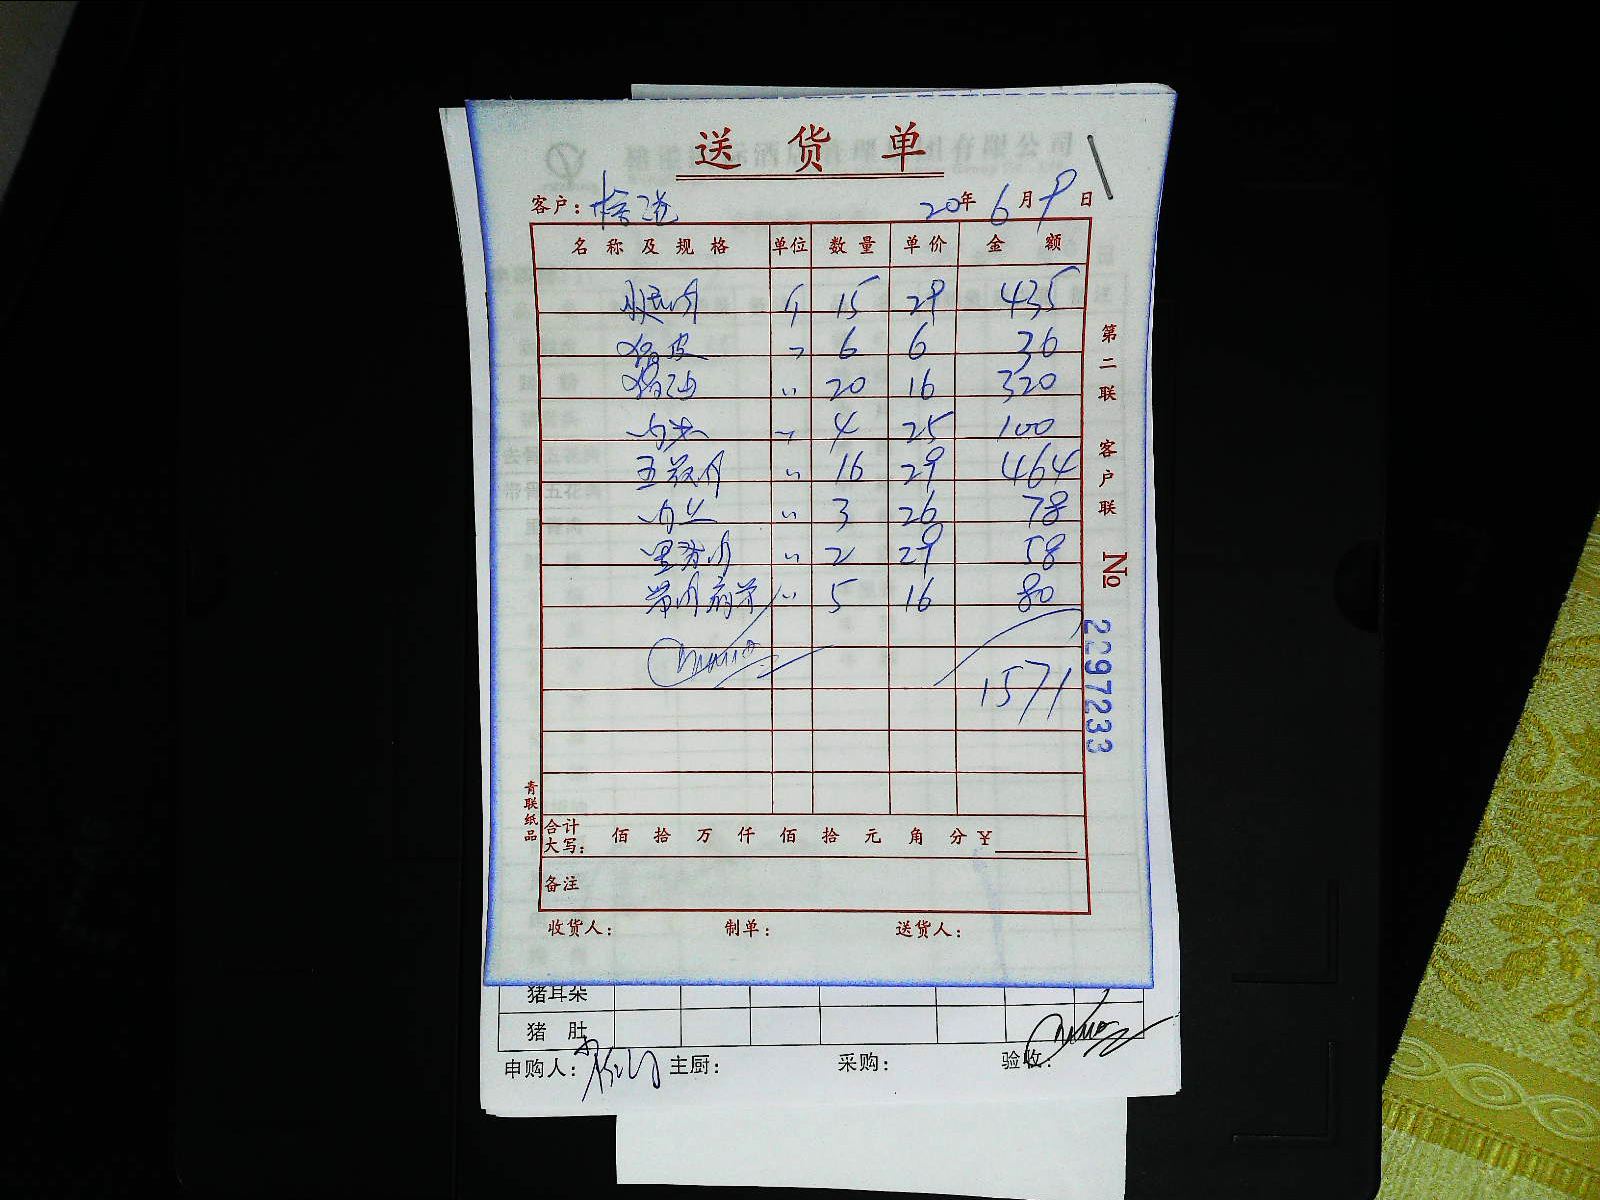 送货单
客户：
20年6月9日
名称及规格 单位 数量 单价 金额
斤 15 29 435
猪皮 〃 6 6 36
猪油 〃 20 16 320
〃 4 25 100
五花肉 〃 16 29 464
〃 3 26 78
里脊肉 〃 2 29 58
〃 5 16 80
1571
第二联 客户联
No 2297233
青联纸品
合计大写： 佰 拾 万 仟 佰 拾 元 角 分 ¥
备注
收货人： 制单： 送货人：
猪耳朵
猪 肚
申购人： 主厨： 采购： 验收：